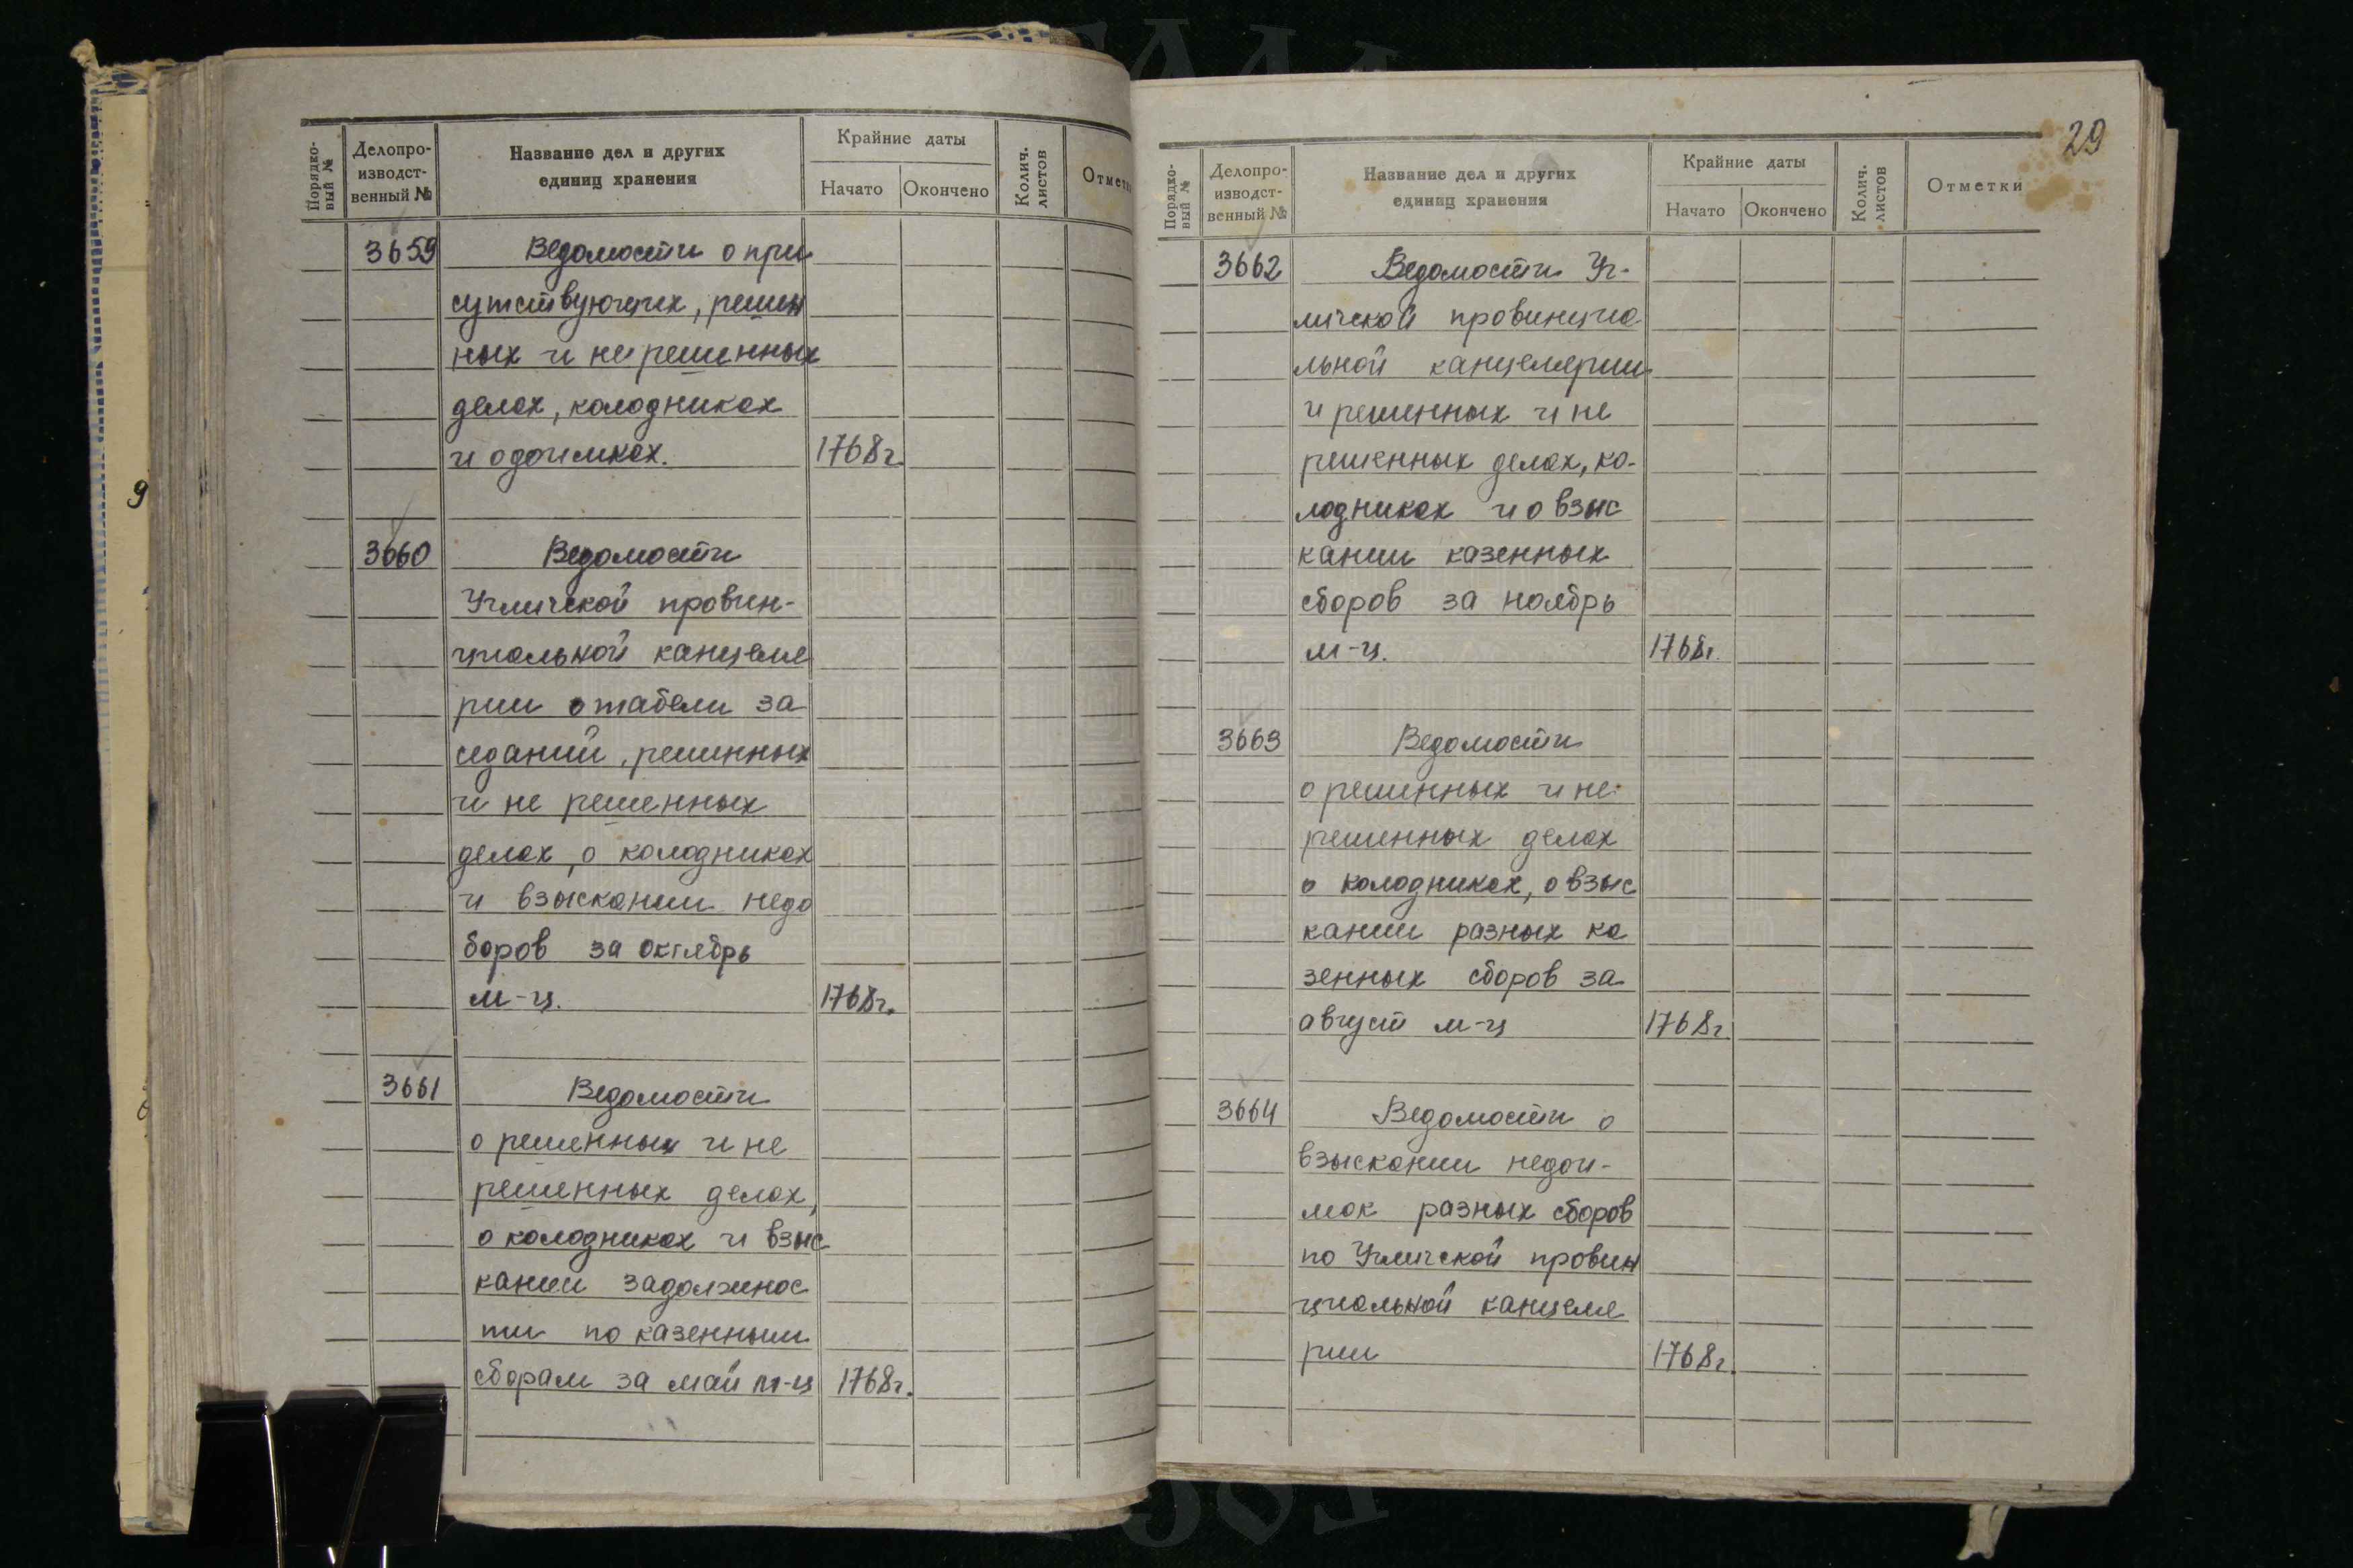 Порядко-
вый №
Делопро-
изводст-
венный №
Название дел и других
единиц хранения
Крайние даты
Начато
Окончено
Колич.
листов
3659
Ведомости о при
сутствующих, решен
ных и нерешенных
делах, колодниках
и о доимках.
1768г.
3660
Ведомости
Угличской провин-
циальной канцеля
рии о табели за
седаний, решенных
и не решенных
делах, о колодниках
и взыскании недо
боров за октябрь
м-ц.
1768г.
3661
Ведомости
о решенных и не
решенных делах,
о колодниках и взыс
кании задолжнос
ти по казенным
сборам за май м-ц
1768г.
29
Порядко-
вый №
Делопро-
изводст-
венный №
Название дел и других
единиц хранения
Крайние даты
Начато
Окончено
Колич.
листов
Отметки
3662
Ведомости Уг-
личской провинциа
льной канцелярии
и решенных и не
решенных делах, ко-
лодниках и о взыс
кании казенных
сборов за ноябрь
м-ц.
1768г.
3663
Ведомости
о решенных и не
решенных делах
о колодниках, о взыс
кании разных ка
зенных сборов за
август м-ц
1768г.
3664
Ведомости о
взыскании недои-
мок разных сборов
по Угличской провин
циальной канцеля
рии
1768г.